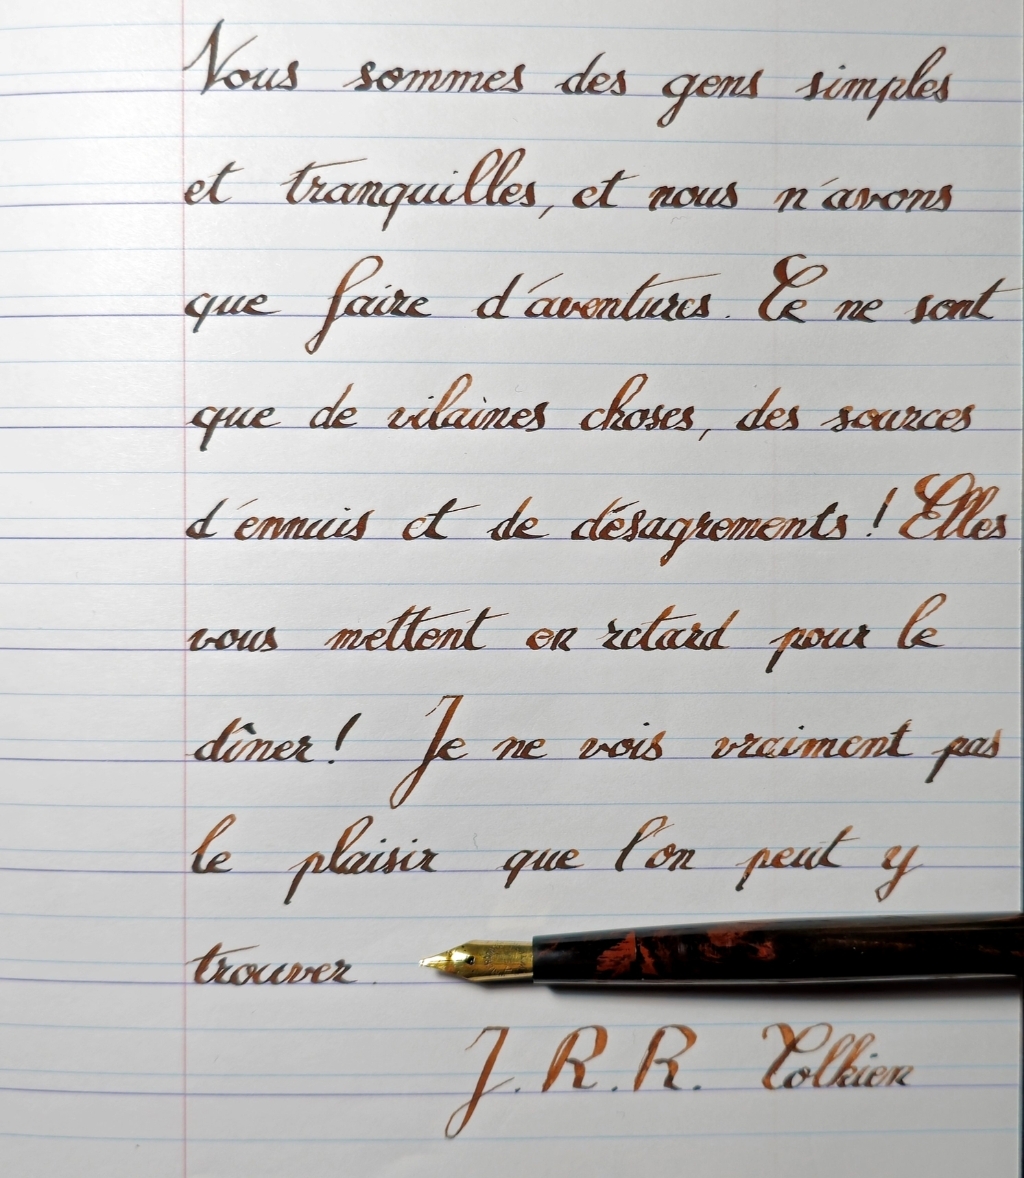 Nous sommes des gens simples
et tranquilles, et nous n'avons
que faire d'aventures. Ce ne sont
que de vilaines choses, des sources
d'ennuis et de désagrements ! Elles
vous mettent en retard pour le
dîner ! Je ne vois vraiment pas
le plaisir que l'on peut y
trouver.
J. R. R. Tolkien